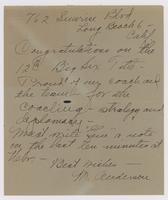 762 Sunrise Blvd
Long Beach 6 -
Calif
Congratulations on the
12th Big Six Title
Proud of my coach and
the team - for the
Coaching - strategy and
diplomacy -
Most note a note
on the last ten minutes at
- Best wishes -
M. Anderson